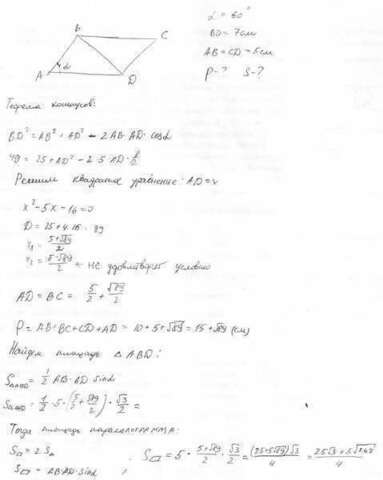 α = 60°
BD = 7см
AB = CD = 5см
P-? S-?
B
C
A
α
D
Теорема косинусов:
BD² = AB² + AD² - 2 AB·AD·cosα
49 = 25 + AD² - 2·5·AD·½
Решим квадратное уравнение AD = x
x² - 5x - 16 = 0
D = 25 + 4·16 = 89
x₁ = (5+√89)/2
x₂ = (5-√89)/2 ← не удовлетворяет условию
AD = BC = 5/2 + √89/2
P = AB+BC+CD+AD = 10+5+√89 = 15+√89 (см)
Найдем площадь △ ABD:
S = 1/2 AB·AD·sinα
S = 1/2 · 5 · (5/2 + √89/2) · √3/2 =
Тогда площадь параллелограмма:
S▱ = 2 S△
S▱ = AB·AD·sinα
S▱ = 5 · (5+√89)/2 · √3/2 = (25+5√89)√3/4 = (25√3+5√267)/4